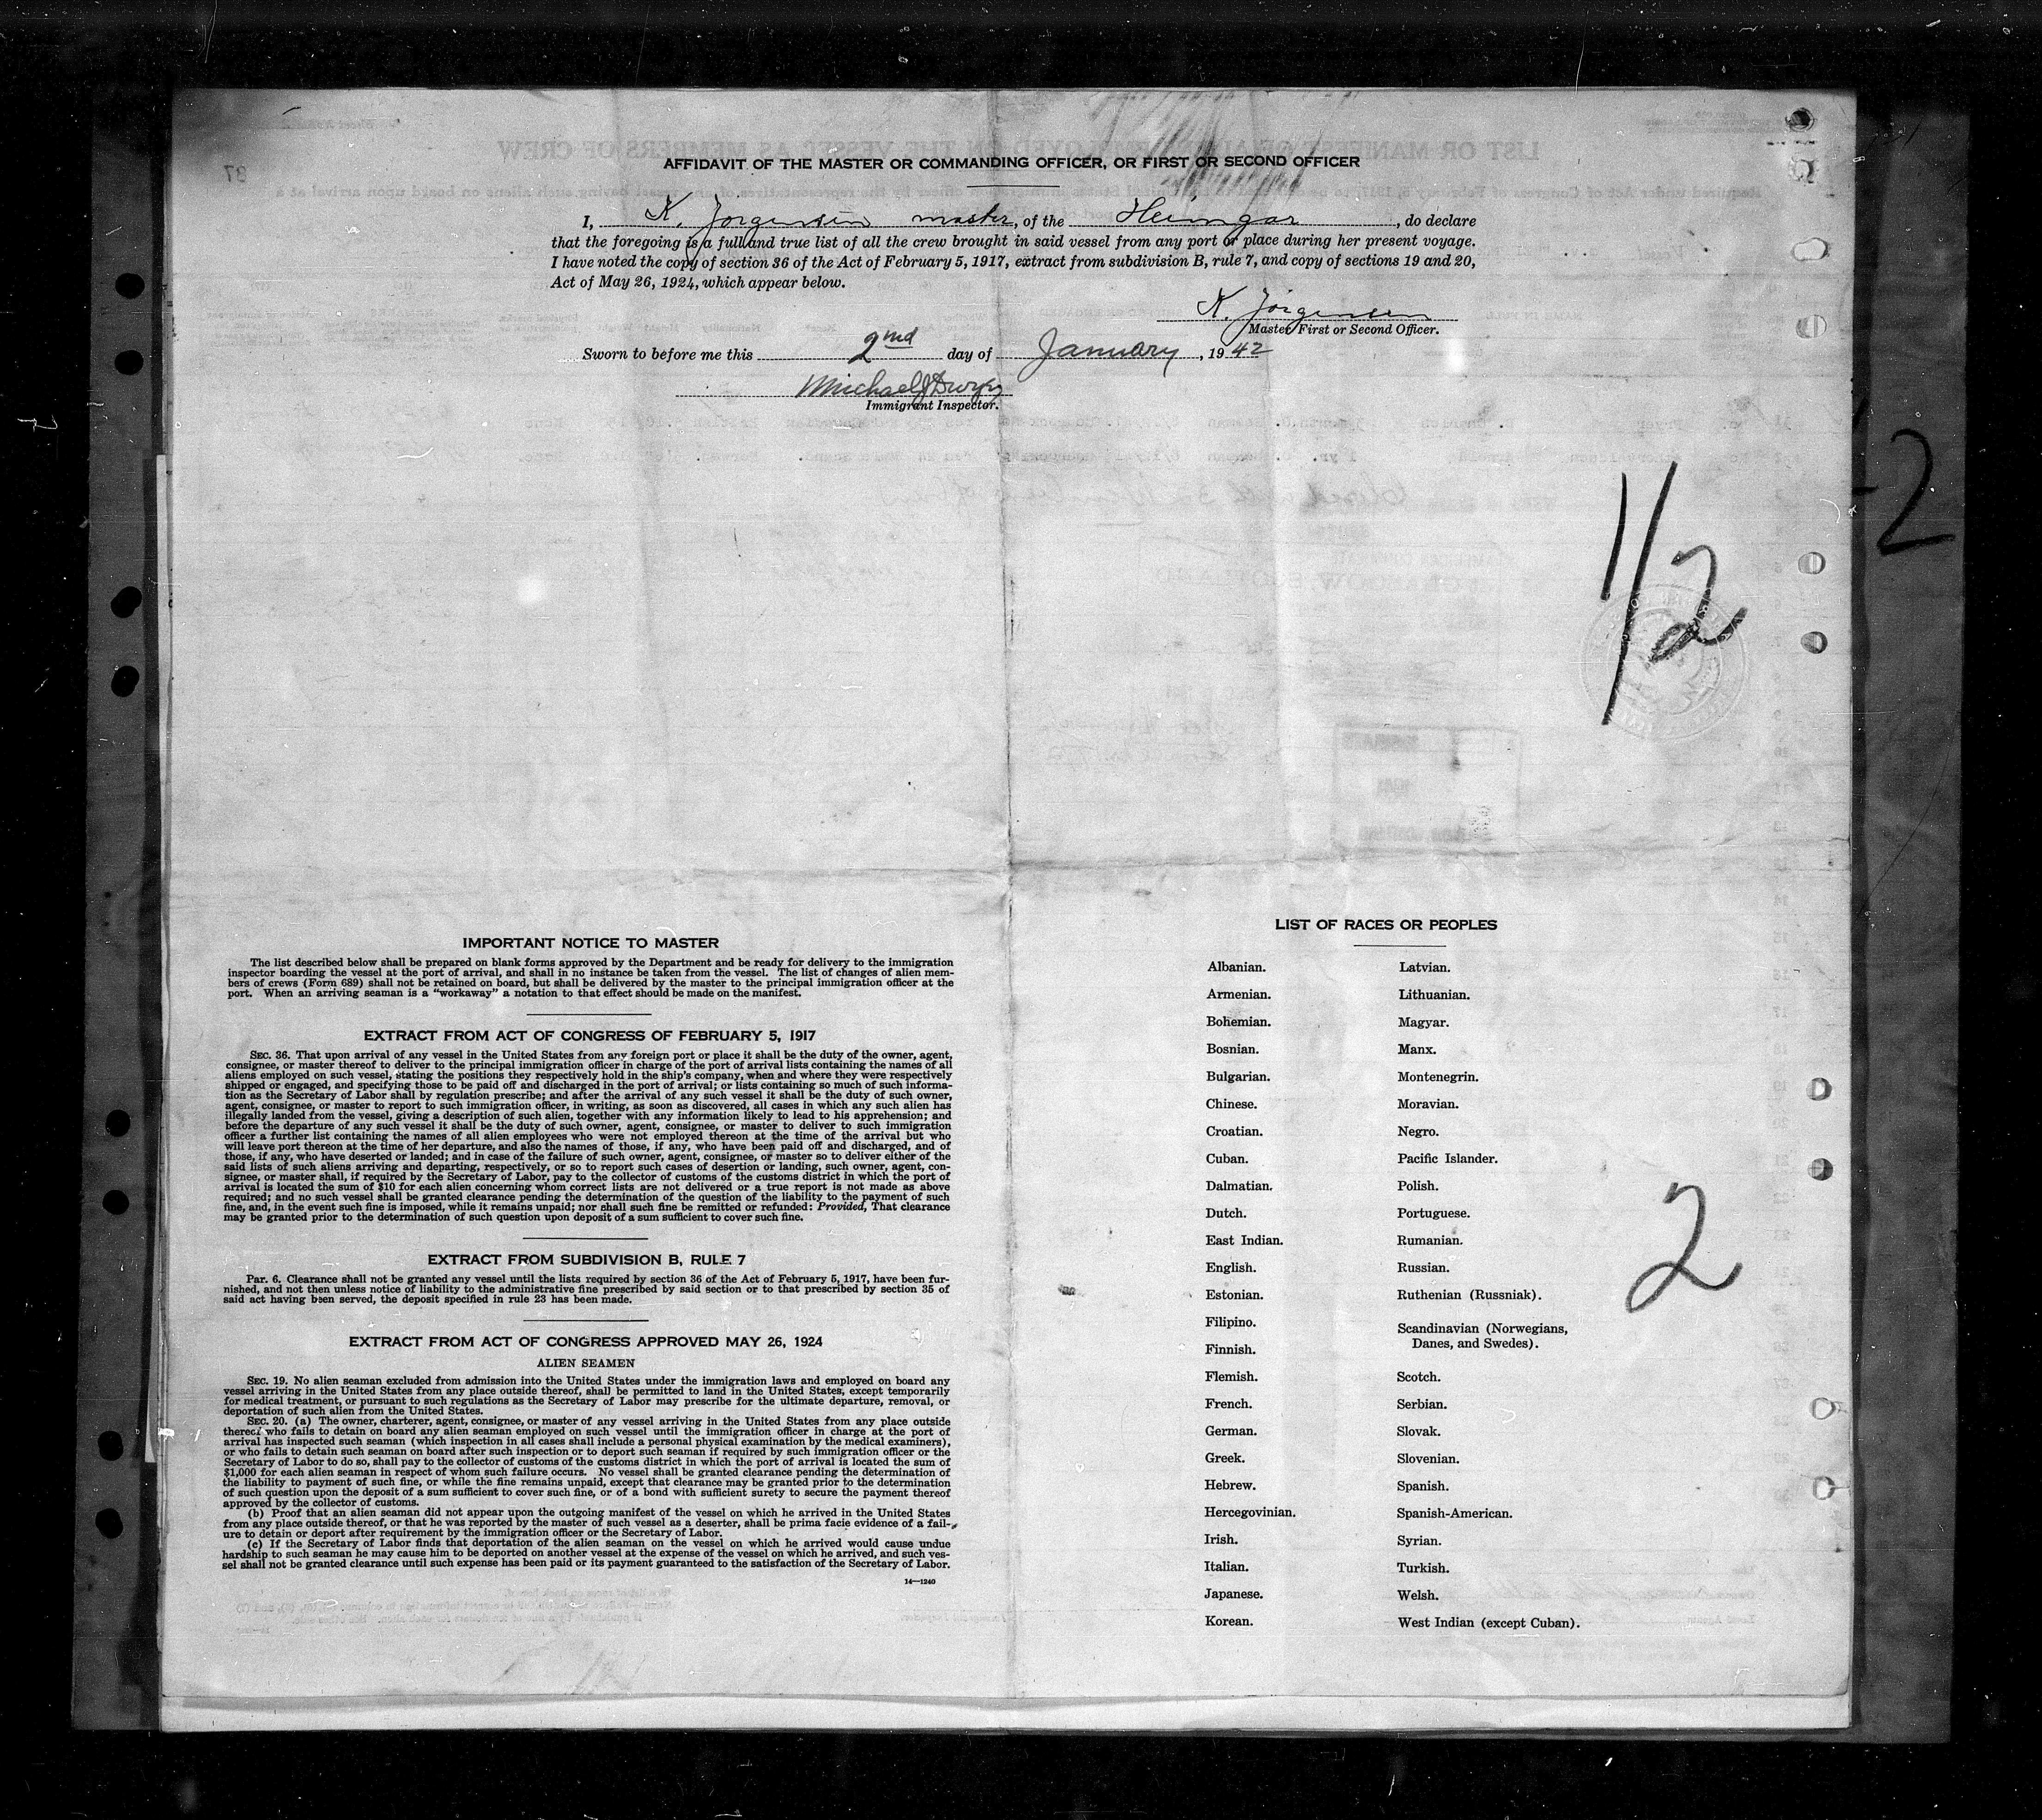 AFFIDAVIT OF THE MASTER OR COMMANDING OFFICER, OR FIRST OR SECOND OFFICER
I, K. Jorgensen master, of the Heimgar, do declare
that the foregoing is a full and true list of all the crew brought in said vessel from any port or place during her present voyage.
I have noted the copy of section 36 of the Act of February 5, 1917, extract from subdivision B, rule 7, and copy of sections 19 and 20,
Act of May 26, 1924, which appear below.
K. Jörgensen
Master First or Second Officer.
Sworn to before me this 2nd day of January, 1942
Michael J
Immigrant Inspector.
1/2
2
IMPORTANT NOTICE TO MASTER
The list described below shall be prepared on blank forms approved by the Department and be ready for delivery to the immigration
inspector boarding the vessel at the port of arrival, and shall in no instance be taken from the vessel. The list of changes of alien mem-
bers of crews (Form 689) shall not be retained on board, but shall be delivered by the master to the principal immigration officer at the
port. When an arriving seaman is a "workaway" a notation to that effect should be made on the manifest.
EXTRACT FROM ACT OF CONGRESS OF FEBRUARY 5, 1917
SEC. 36. That upon arrival of any vessel in the United States from any foreign port or place it shall be the duty of the owner, agent,
consignee, or master thereof to deliver to the principal immigration officer in charge of the port of arrival lists containing the names of all
aliens employed on such vessel, stating the positions they respectively hold in the ship's company, when and where they were respectively
shipped or engaged, and specifying those to be paid off and discharged in the port of arrival; or lists containing so much of such informa-
tion as the Secretary of Labor shall by regulation prescribe; and after the arrival of any such vessel it shall be the duty of such owner,
agent, consignee, or master to report to such immigration officer, in writing, as soon as discovered, all cases in which any such alien has
illegally landed from the vessel, giving a description of such alien, together with any information likely to lead to his apprehension; and
before the departure of any such vessel it shall be the duty of such owner, agent, consignee, or master to deliver to such immigration
officer a further list containing the names of all alien employees who were not employed thereon at the time of the arrival but who
will leave port thereon at the time of her departure, and also the names of those, if any, who have been paid off and discharged, and of
those, if any, who have deserted or landed; and in case of the failure of such owner, agent, consignee, or master so to deliver either of the
said lists of such aliens arriving and departing, respectively, or so to report such cases of desertion or landing, such owner, agent, con-
signee, or master shall, if required by the Secretary of Labor, pay to the collector of customs of the customs district in which the port of
arrival is located the sum of $10 for each alien concerning whom correct lists are not delivered or a true report is not made as above
required; and no such vessel shall be granted clearance pending the determination of the question of the liability to the payment of such
fine, and, in the event such fine is imposed, while it remains unpaid; nor shall such fine be remitted or refunded: Provided, That clearance
may be granted prior to the determination of such question upon deposit of a sum sufficient to cover such fine.
EXTRACT FROM SUBDIVISION B, RULE 7
Par. 6. Clearance shall not be granted any vessel until the lists required by section 36 of the Act of February 5, 1917, have been fur-
nished, and not then unless notice of liability to the administrative fine prescribed by said section or to that prescribed by section 35 of
said act having been served, the deposit specified in rule 23 has been made.
EXTRACT FROM ACT OF CONGRESS APPROVED MAY 26, 1924
ALIEN SEAMEN
SEC. 19. No alien seaman excluded from admission into the United States under the immigration laws and employed on board any
vessel arriving in the United States from any place outside thereof, shall be permitted to land in the United States, except temporarily
for medical treatment, or pursuant to such regulations as the Secretary of Labor may prescribe for the ultimate departure, removal, or
deportation of such alien from the United States.
SEC. 20. (a) The owner, charterer, agent, consignee, or master of any vessel arriving in the United States from any place outside
thereof who fails to detain on board any alien seaman employed on such vessel until the immigration officer in charge at the port of
arrival has inspected such seaman (which inspection in all cases shall include a personal physical examination by the medical examiners),
or who fails to detain such seaman on board after such inspection or to deport such seaman if required by such immigration officer or the
Secretary of Labor to do so, shall pay to the collector of customs of the customs district in which the port of arrival is located the sum of
$1,000 for each alien seaman in respect of whom such failure occurs. No vessel shall be granted clearance pending the determination of
the liability to payment of such fine, or while the fine remains unpaid, except that clearance may be granted prior to the determination
of such question upon the deposit of a sum sufficient to cover such fine, or of a bond with sufficient surety to secure the payment thereof
approved by the collector of customs.
(b) Proof that an alien seaman did not appear upon the outgoing manifest of the vessel on which he arrived in the United States
from any place outside thereof, or that he was reported by the master of such vessel as a deserter, shall be prima facie evidence of a fail-
ure to detain or deport after requirement by the immigration officer or the Secretary of Labor.
(c) If the Secretary of Labor finds that deportation of the alien seaman on the vessel on which he arrived would cause undue
hardship to such seaman he may cause him to be deported on another vessel at the expense of the vessel on which he arrived, and such ves-
sel shall not be granted clearance until such expense has been paid or its payment guaranteed to the satisfaction of the Secretary of Labor.
14—1240
LIST OF RACES OR PEOPLES
Albanian.
Armenian.
Bohemian.
Bosnian.
Bulgarian.
Chinese.
Croatian.
Cuban.
Dalmatian.
Dutch.
East Indian.
English.
Estonian.
Filipino.
Finnish.
Flemish.
French.
German.
Greek.
Hebrew.
Hercegovinian.
Irish.
Italian.
Japanese.
Korean.
Latvian.
Lithuanian.
Magyar.
Manx.
Montenegrin.
Moravian.
Negro.
Pacific Islander.
Polish.
Portuguese.
Rumanian.
Russian.
Ruthenian (Russniak).
Scandinavian (Norwegians,
Danes, and Swedes).
Scotch.
Serbian.
Slovak.
Slovenian.
Spanish.
Spanish-American.
Syrian.
Turkish.
Welsh.
West Indian (except Cuban).
2